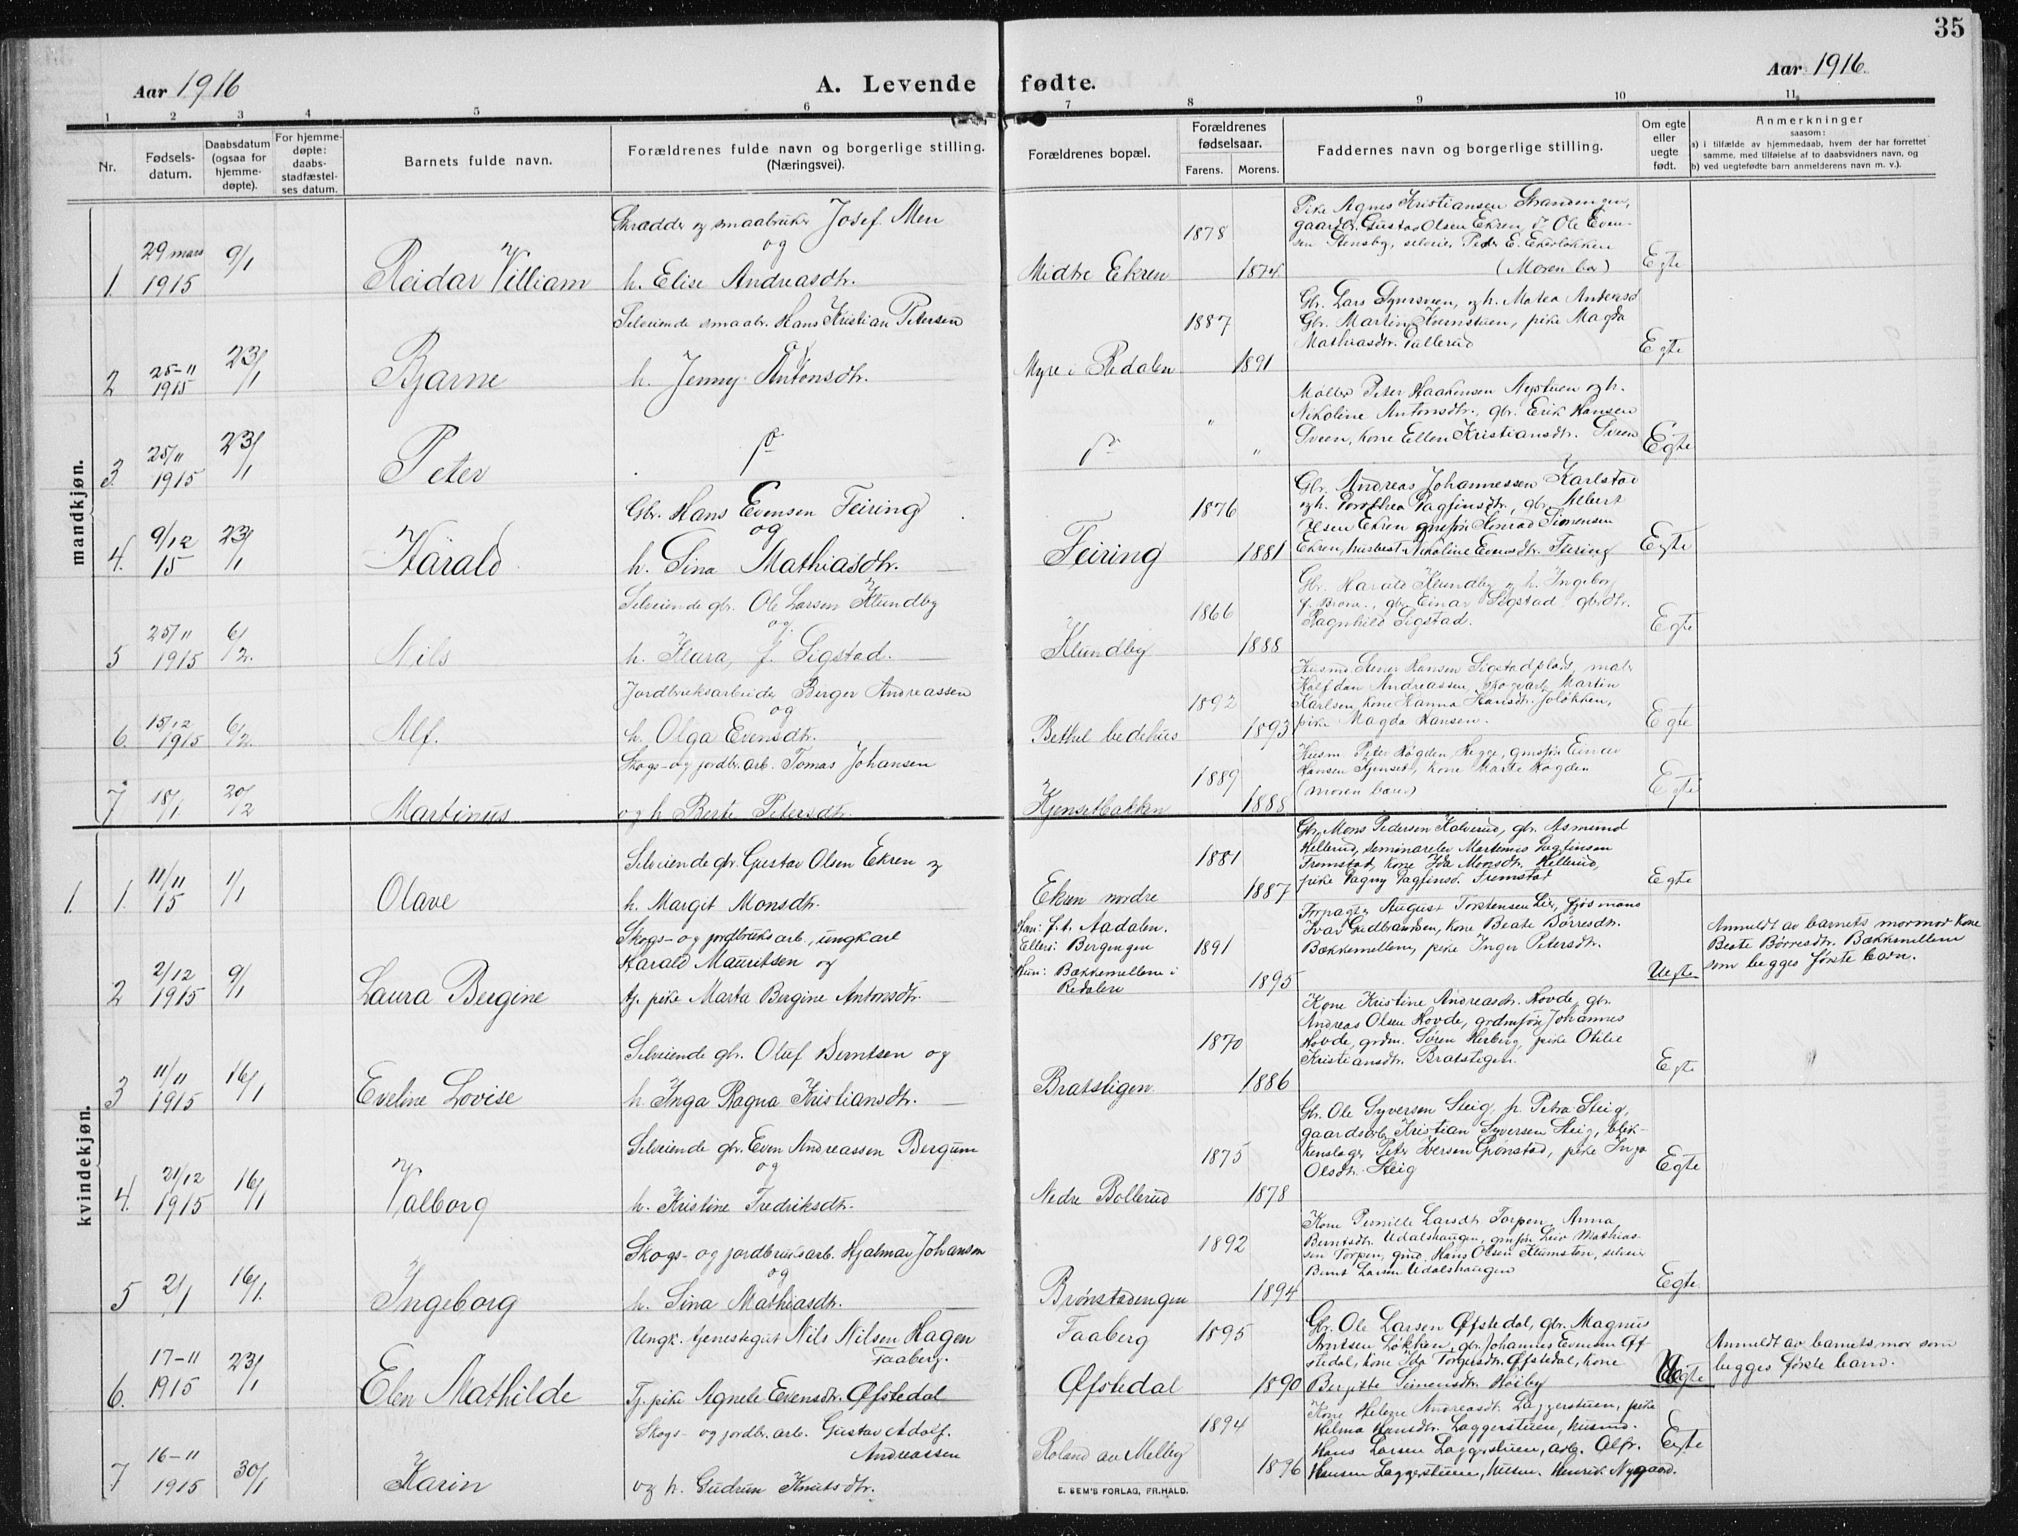 35
Aar 1916
A. Levende fødte.
Aar 1916.
1 2 3 4 5 6 7 8 9 10 11.
Nr.
Fødsels-
datum.
Daabsdatum
(ogsaa for
hjemme-
døpte).
For hjemme-
døpte:
daabs-
stadfæstel-
ses datum.
Barnets fulde navn.
Forældrenes fulde navn og borgerlige stilling.
(Næringsvei).
Forældrenes bopæl.
Forældrenes
fødselsaar.
Farens. Morens.
Faddernes navn og borgerlige stilling.
Om egte
eller
uegte
født.
Anmerkninger
saasom:
a) i tilfælde av hjemmedaab, hvem der har forrettet
samme, med tilføielse af to daabsvidners navn, og
b) ved uegtefødte barn anmelderens navn m. v.).
mandkjøn.
1. 29 mars 1915 9/1 Reidar Villiam
Skrædder og smaabruker Josef Men
og
h. Elise Andreasdtr.
Midtre Ekren 1878 1874
Pike Agnes Kristiansen Strandengen,
gaardbr. Gustav Olsen Ekren, Ole Even-
sen Stensby, selveier Peder E. Ekerløkken
(Moren bar)
Egte
2 25-11 1915 23/1 Bjarne
Selveiende smaabr. Hans Kristian Petersen
og
h. Jenny Antonsdtr.
Myre i Redalen 1887 1891
Gbr. Lars og h. Matea
Gbr. Martin pike Magda
Mathiasdtr.
Egte
3. 25/11 1915 23/1 Peter
do
do " "
Møller Peter Haakensen Nystuen og h.
Nikoline Antonsdtr., gbr. Erik Hansen
Sveen, kone Ellen Kristiansdtr. Sveen
Egte
4. 9/12 15 23/1 Harald
Gbr. Hans Evensen Feiring
og
h. Sina Mathiasdtr.
Feiring 1876 1881
Gbr. Andreas Johannessen Karlstad
og h. Dorothea Dagfinsdtr., gbr. Albert
Olsen Ekren gmsøn Konrad Simensen
Ekren, husbest. Nikoline Evensdtr. Feiring
Egte
5 25/11 1915 6/2. Nils
Selveiende gbr. Ole Larsen Klundby
og
h. Klara, f. Sigstad.
Klundby 1866 1888
Gbr. Harald Klundby og h. Ingeborg
f. gbr. Einar Sigstad gbrdtr.
Ragnhild Sigstad.
Egte
6. 15/12 1915 6/2. Alf.
Jordbruksarbeider Birger Andreassen
og
h. Olga Evensdtr.
Bethel bedehus 1892 1893
Husmd Hansen Sigstadplads, maler
Halfdan Andreassen, skogsarb. Martin
Karlsen, kone Hanna Hansdtr. Joløkken,
pike Magda Hansen.
Egte
7 18/1. 20/2 Martinus
Skogs- og jordbr.arb. Tomas Johansen
og h Berte Petersdtr.
Kjensetbakken 1889 1888
Husm. Peter Høgden, Hegge, gmsøn Einar
Hansen Kjenset, kone Marte Høgden
(moren barn)
Egte
kvindekjøn.
1. 1. 11/11 15 1/1 Olave
Selveiende gbr. Gustav Olsen Ekren og
h. Margit Monsdtr.
Ekren nordre 1881 1887
Gbr. Mons Pedersen Kalverud, gbr. Asmund
Hellerud, seminarelev Martenius Dagfinsen
Fremstad, kone Ida Monsdtr. Hellerud,
pike Dagny Dagfinsd. Fremstad
Egte
2 2/12 1915 9/1 Laura Bergine
Skogs- og jordbruksarb., ungkarl
Harald Mauritsen og
tj. pike Marta Bergine Antonsdtr.
Han: f.t. Aadalen.
Ellers: Bergengen
Hun: Bækkemellem i
Redalen 1891 1895
Forpagter August Torstensen Lie, fjøsmans
Ivar Gudbrandsen, kone Beate Børresdtr.
Bækkemellem, pike Inger Petersdtr.
Uegte
Anmeldt av barnets mormor kone
Beate Børresdtr. Bækkemellem
som begges første barn.
3 11/11 1915 16/1 Eveline Lovise
Selveiende gbr. Oluf Berntsen og
h. Inga Ragna Kristiansdtr.
Bratstigen. 1870 1886
Kone Kristine Andreasdtr. Hovde, gbr.
Andreas Olsen Hovde, grdmsøn Johannes
Hovde, grdm. Søren Herberg, pike Otilie
Kristiansdtr. Bratstigen.
Egte
4. 21/12 1915 16/1 Valborg
Selveiende gbr. Even Andreassen Bergum
og
h. Kristine Fredriksdtr.
Nedre Bollerud 1875 1878
Gbr. Ole Syversen Steig, fr. Petra Steig,
gaardsarb. Kristian Syversen Steig, blik-
kenslager Peter Iversen Grønstad, pike Inga
Olsdtr. Steig
Egte
5 2/1 16/1. Ingeborg
Skogs- og jordbruksarb. Hjalmar Johansen
og
h. Sina Mathiasdtr.
Brønstadengen 1892 1894
Kone Pernille Larsdtr. Torpen, Anna
Berntsdtr. Udalshaugen, gmsøn Leiv Mathias-
sen Torpen, gmd. Hans Olsen Klumsten, selveier
Bernt Larsen Udalshaugen
Egte.
6. 17-11 1915 23/1 Elen Mathilde
Ungk. tjenestegut Nils Nilsen Hagen
Faaberg.
Tj. pike Agnete Evensdtr. Øfstedal
Faaberg
Øfstedal 1895 1890
Gbr. Ole Larsen Øfstedal, gbr. Magnus
Arntsen Løkken, gbr. Johannes Evensen Øf-
stedal, kone Ida Torgersdtr. Øfstedal, kone
Bergitte Simensdtr. Høiby
Uegte
Anmeldt av barnets mor som
begges første barn.
7 16-11 1915 30/1 Karin
Skogs- og jordbr. arb. Gustav Adolf.
Andreassen
og h. Gudrun Knutsdtr.
Roland av Mellby 1894 1896
Kone Helene Andreasdt. Laggerstuen, pike
Helma Hansdtr. Laggerstuen, husmd.
Hans Larsen Laggerstuen, arb. Alfr.
Hansen Laggerstuen, husm. Henrik Nygaard.
Egte
E. SEM'S FORLAG, FR.HALD.